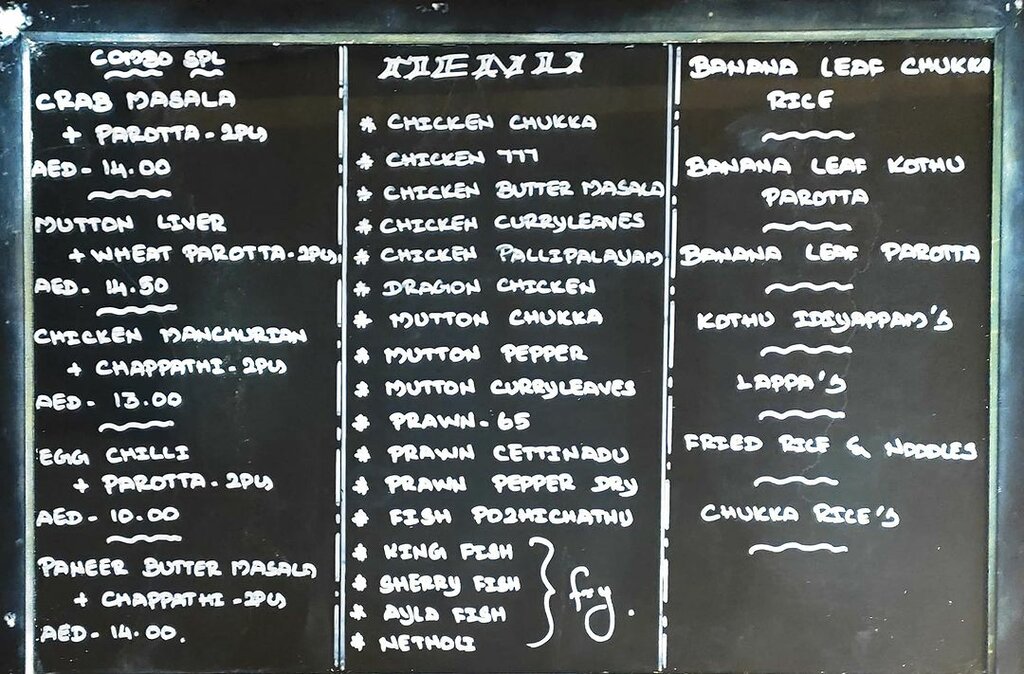 COMBO SPL
CRAB MASALA
+ PAROTTA - 2PCS
AED - 14.00
MUTTON LIVER
+ WHEAT PAROTTA - 2PCS
AED - 14.50
CHICKEN MANCHURIAN
+ CHAPPATHI - 2PCS
AED - 13.00
EGG CHILLI
+ PAROTTA - 2PCS
AED - 10.00
PANEER BUTTER MASALA
+ CHAPPATHI - 2PCS
AED - 14.00.
MENU
* CHICKEN CHUKKA
* CHICKEN 777
* CHICKEN BUTTER MASALA
* CHICKEN CURRYLEAVES
* CHICKEN PALLIPALAYAM
* DRAGON CHICKEN
* MUTTON CHUKKA
* MUTTON PEPPER
* MUTTON CURRYLEAVES
* PRAWN - 65
* PRAWN CETTINADU
* PRAWN PEPPER DRY
* FISH POZHICHATHU
* KING FISH
* SHERRY FISH
* AYLA FISH
* NETHOLI
} fry.
BANANA LEAF CHUKKA
RICE
BANANA LEAF KOTHU
PAROTTA
BANANA LEAF PAROTTA
KOTHU IDIYAPPAM'S
LAPPA'S
FRIED RICE & NOODLES
CHUKKA RICE'S